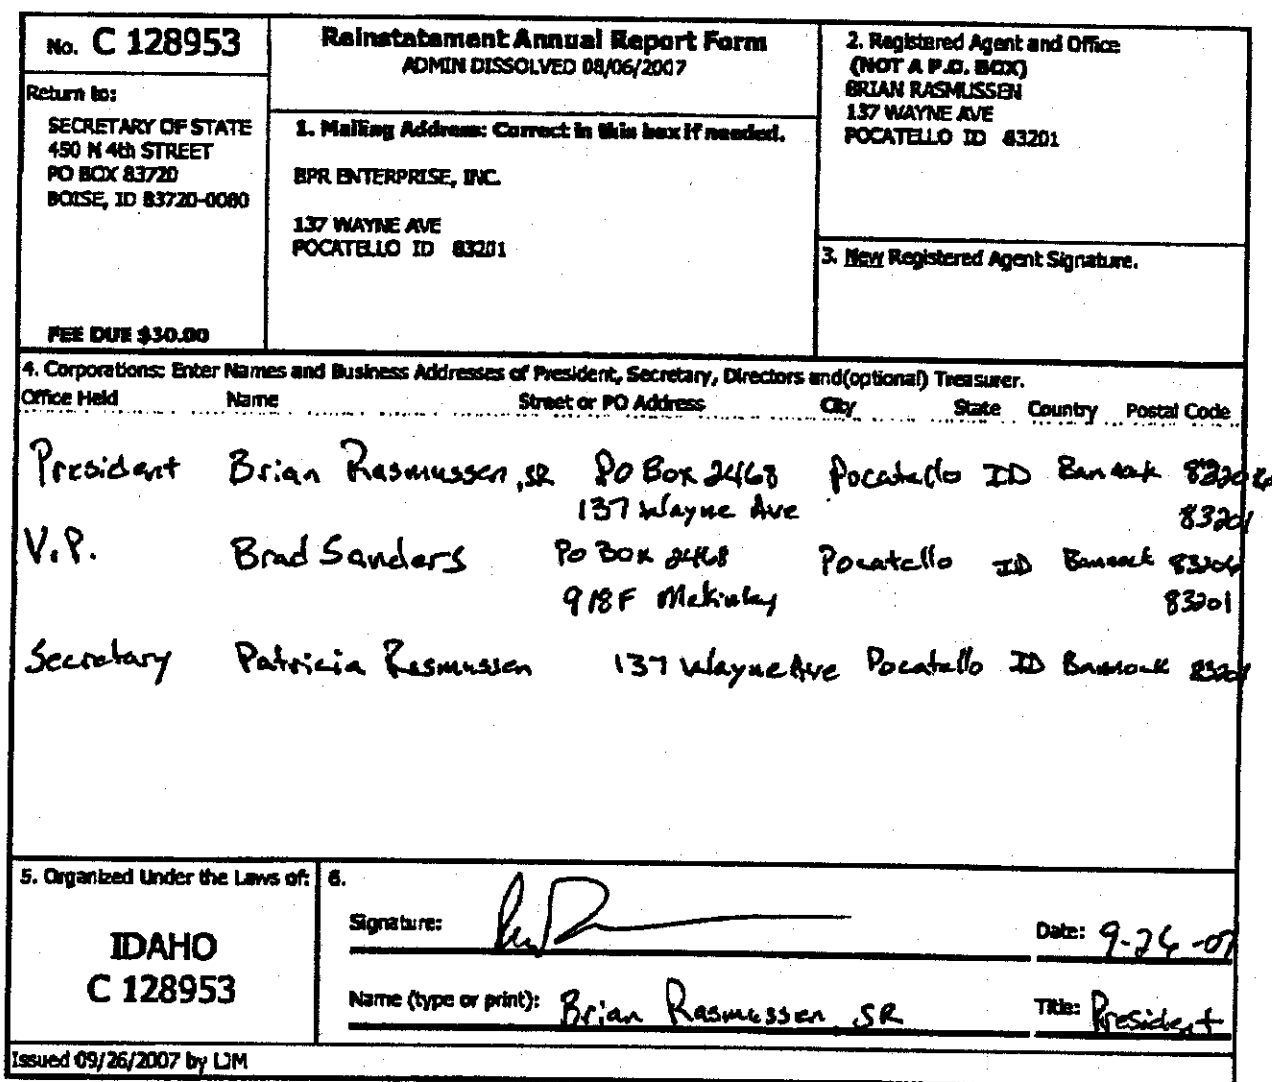 No. C 128953
Reinstatement Annual Report Form
ADMIN DISSOLVED 08/06/2007
Return to:
SECRETARY OF STATE
450 N 4th STREET
PO BOX 83720
BOISE, ID 83720-0080
FEE DUE $30.00
1. Mailing Address: Correct in this box if needed.
BPR ENTERPRISE, INC.
137 WAYNE AVE
POCATELLO ID 83201
2. Registered Agent and Office
(NOT A P.O. BOX)
BRIAN RASMUSSEN
137 WAYNE AVE
POCATELLO ID 83201
3. New Registered Agent Signature.
4. Corporations: Enter Names and Business Addresses of President, Secretary, Directors and(optional) Treasurer.
Office Held Name Street or PO Address City State Country Postal Code
President Brian Rasmussen, SR PO Box 2468 Pocatello ID Bannock 83206
137 Wayne Ave 83201
V.P. Brad Sanders Po Box 2468 Pocatello ID Bannock 83206
918 F McKinley 83201
Secretary Patricia Rasmussen 137 Wayne Ave Pocatello ID Bannock 83201
5. Organized Under the Laws of:
IDAHO
C 128953
6.
Signature:
Date: 9-26-07
Name (type or print): Brian Rasmussen SR
Title: President
Issued 09/26/2007 by LJM